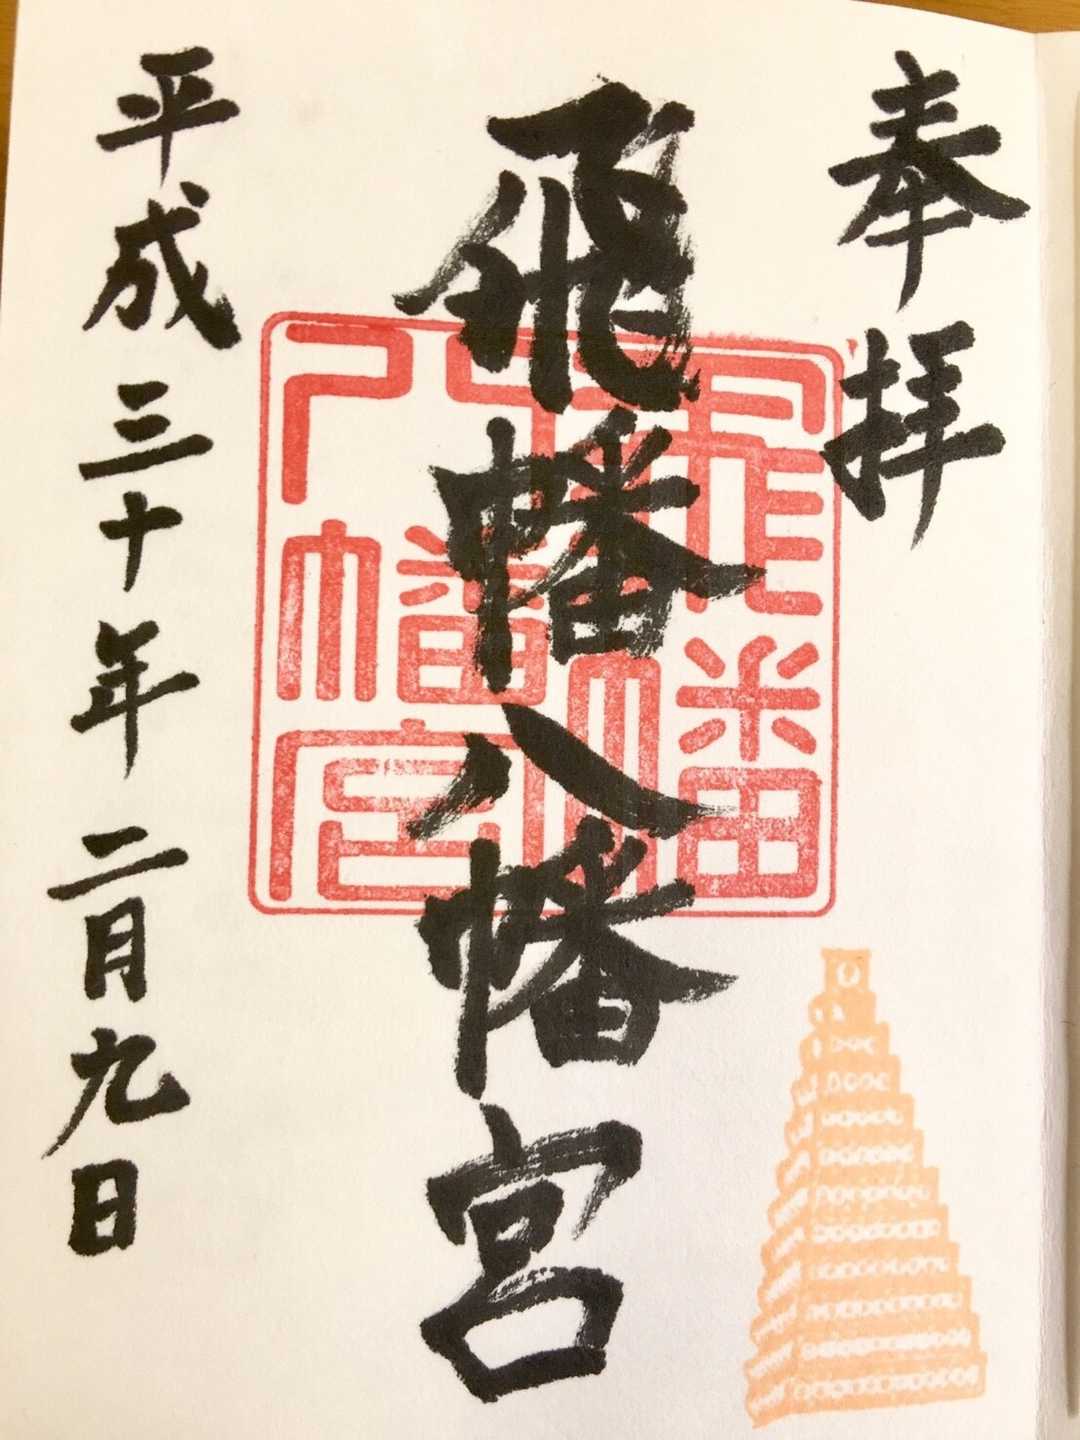 奉拝
飛幡八幡宮
平成三十年二月九日
飛幡
八幡宮